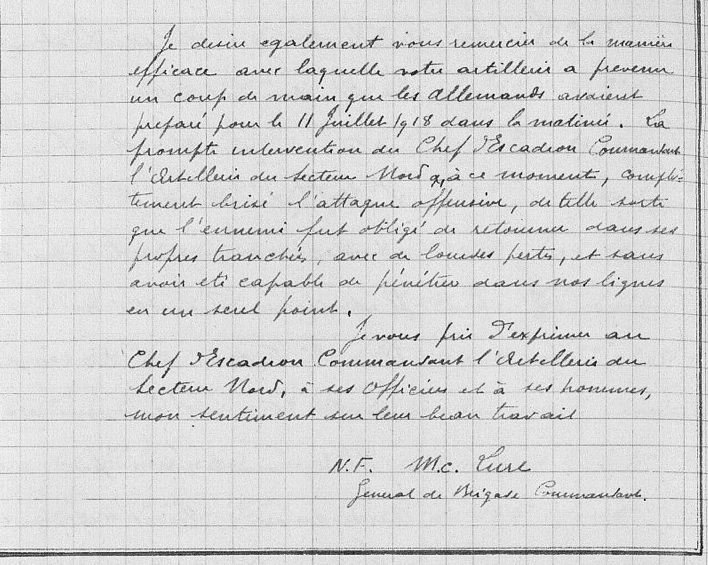 Je desire egalement vous remercier de la manière
efficace avec laquelle votre artillerie a prevenu
un coup de main que les Allemands avaient
preparé pour le 11 Juillet 1918 dans la matinée. La
prompte intervention du Chef d'Escadron Commandant
l'Artillerie du Secteur Nord a, à ce moment, complè-
tement brisé l'attaque offensive, de telle sorte
que l'ennemi fut obligé de retourner dans ses
propres tranchées, avec de lourdes pertes, et sans
avoir été capable de pénétrer dans nos lignes
en un seul point.
Je vous prie d'exprimer au
Chef d'Escadron Commandant l'Artillerie du
Secteur Nord, à ses Officiers et à ses hommes,
mon sentiment sur leur beau travail
N.F. Mc. Lure
General de Brigade Commandant.